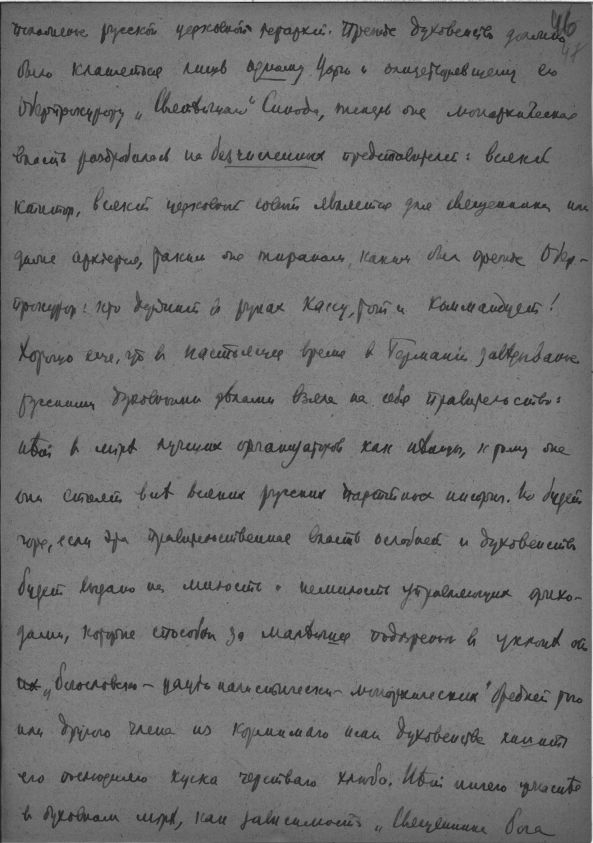 46
47
положение русской церковной иерархии. Прежде духовенство должно
было кланяться лишь одному Царю и олицетворявшему его
Оберпрокурору „Святейшаго" Синода, теперь же монархическая
власть раздробилась на безчисленных представителей: всякий
ктитор, всякий церковный совет является для священника или
даже архиерея, таким же тираном, каким был прежде Обер-
прокурор: кто держит в руках кассу, тот и коммандует!
Хорошо еще, что в настоящее время в Германии заведыванье
русскими духовными делами взяло на себя правительство:
нѣт в мiрѣ лучших организаторов как нѣмцы, к тому же
они стоят внѣ всяких русских партiйных интриг. Но будет
горе, если эта правительственная власть ослабеет и духовенство
будет выдано на милость и немилость управляющих прихо-
дами, которые способны за малейшее подозрение в уклоне от
их „богословско - националистически - монархических" бредней того
или другого члена из кормимаго ими духовенства лишить
его последняго куска черстваго хлеба. Нѣт ничего ужаснѣе
в духовном мiрѣ, как зависимость „Священника Бога